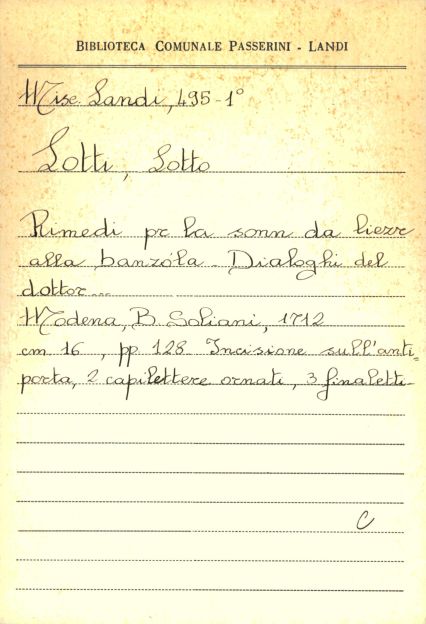 BIBLIOTECA COMUNALE PASSERINI - LANDI
Misc. Landi, 495-1°
Lotti, Lotto
Rimedi pr la sonn da liezr
alla banzóla. Dialoghi del
dottor...
Modena, B. Soliani, 1712
cm 16, pp 128 Incisione sull'anti=
porta, 2 capilettere ornati, 3 finaletti.
C